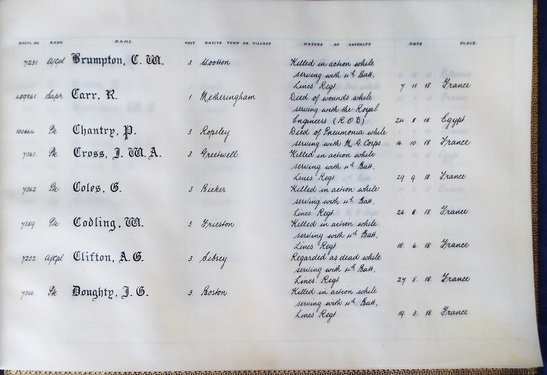 REGTL. NO RANK NAME UNIT NATIVE TOWN OR VILLAGE NATURE OF CASUALTY DATE PLACE
7231 A/Cpl Brumpton, C. W. 3 Wootton Killed in action while
serving with 4th Batt.
Lincs Regt 7 11 18 France
Sapr. Carr, R. 1 Metheringham Died of wounds while
serving with the Royal
Engineers (R O D) 24 8 18 Egypt
Pte Chantry, P. 3 Ropsley Died of Pneumonia while
serving with M. G. Corps 16 10 18 France
7361 Pte Cross, J. W. A. 3 Greetwell Killed in action while
serving with 4th Batt.
Lincs Regt 29 9 18 France
7362 Pte Coles, G. 3 Bicker Killed in action while
serving with 4th Batt.
Lincs Regt 26 8 18 France
Pte Codling, W. 3 Frieston Killed in action while
serving with 4th Batt.
Lincs Regt 18 6 18 France
7252 A/Cpl Clifton, A. G. 3 Sibsey Regarded as dead while
serving with 4th Batt.
Lincs Regt 27 5 18 France
Pte Doughty, J. G. 3 Boston Killed in action while
serving with 4th Batt.
Lincs Regt 19 5 18 France